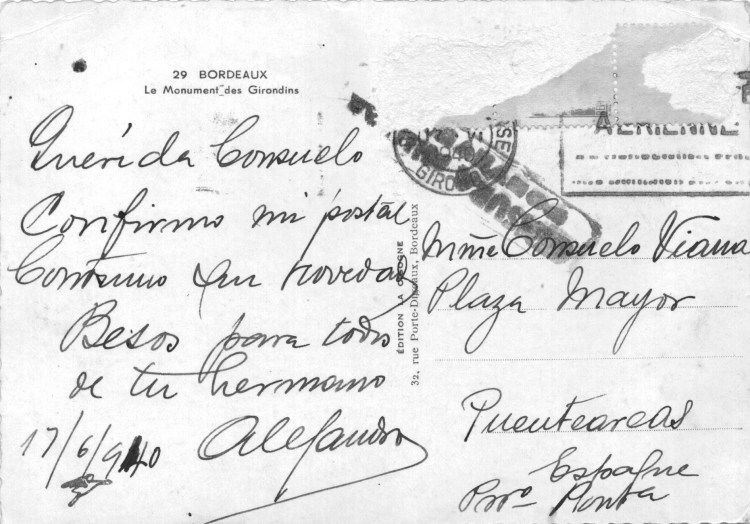 29 BORDEAUX
Le Monument des Girondins
Querida Consuelo
Confirmo mi postal
Continuo sin novedad
Besos para todos
de tu hermano
Alejandro
17/6/940
ÉDITION LA CIGOGNE
32, rue Porte-Dijeaux, Bordeaux
1940
GIRONDE
AÉRIENNE
Mme Consuelo Viana
Plaza Mayor
Puenteareas
Espagne
Prov Ponta